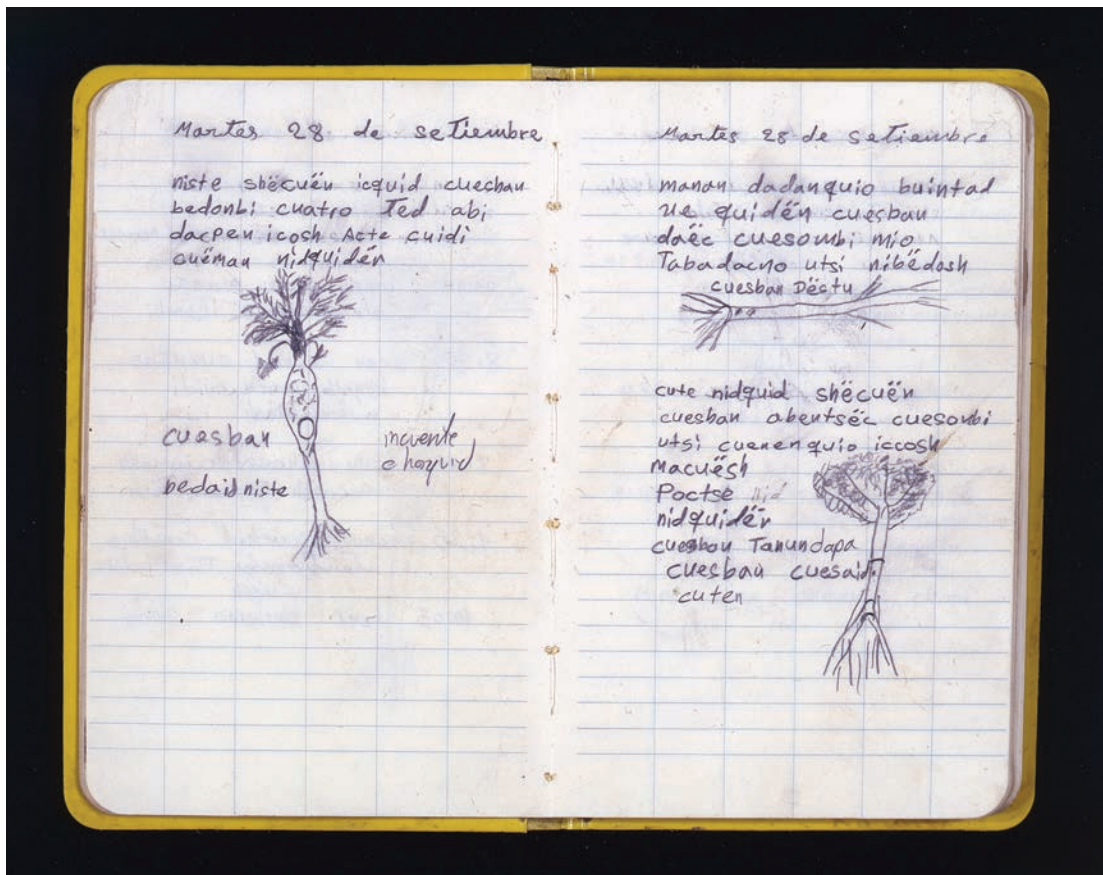 Martes 28 de setiembre
niste shëcuën icquid cuesban
bedonbi cuatro Ted abi
dacpen icosh Acte cuidi
cuëman nidquidën
cuesban
bedaid niste
Martes 28 de setiembre
manan dadanquio buintad
ue quidën cuesban
daëc cuesombi mio
Tabadacno utsi nibëdosh
cuesban Dëctu
cute nidquid shëcuën
cuesban abentsëc cuesonbi
utsi cuenenquio iccosh
macuësh
Pactsë nid
nidquidën
cuesban Tanundapa
cuesban cuesaid
cuten